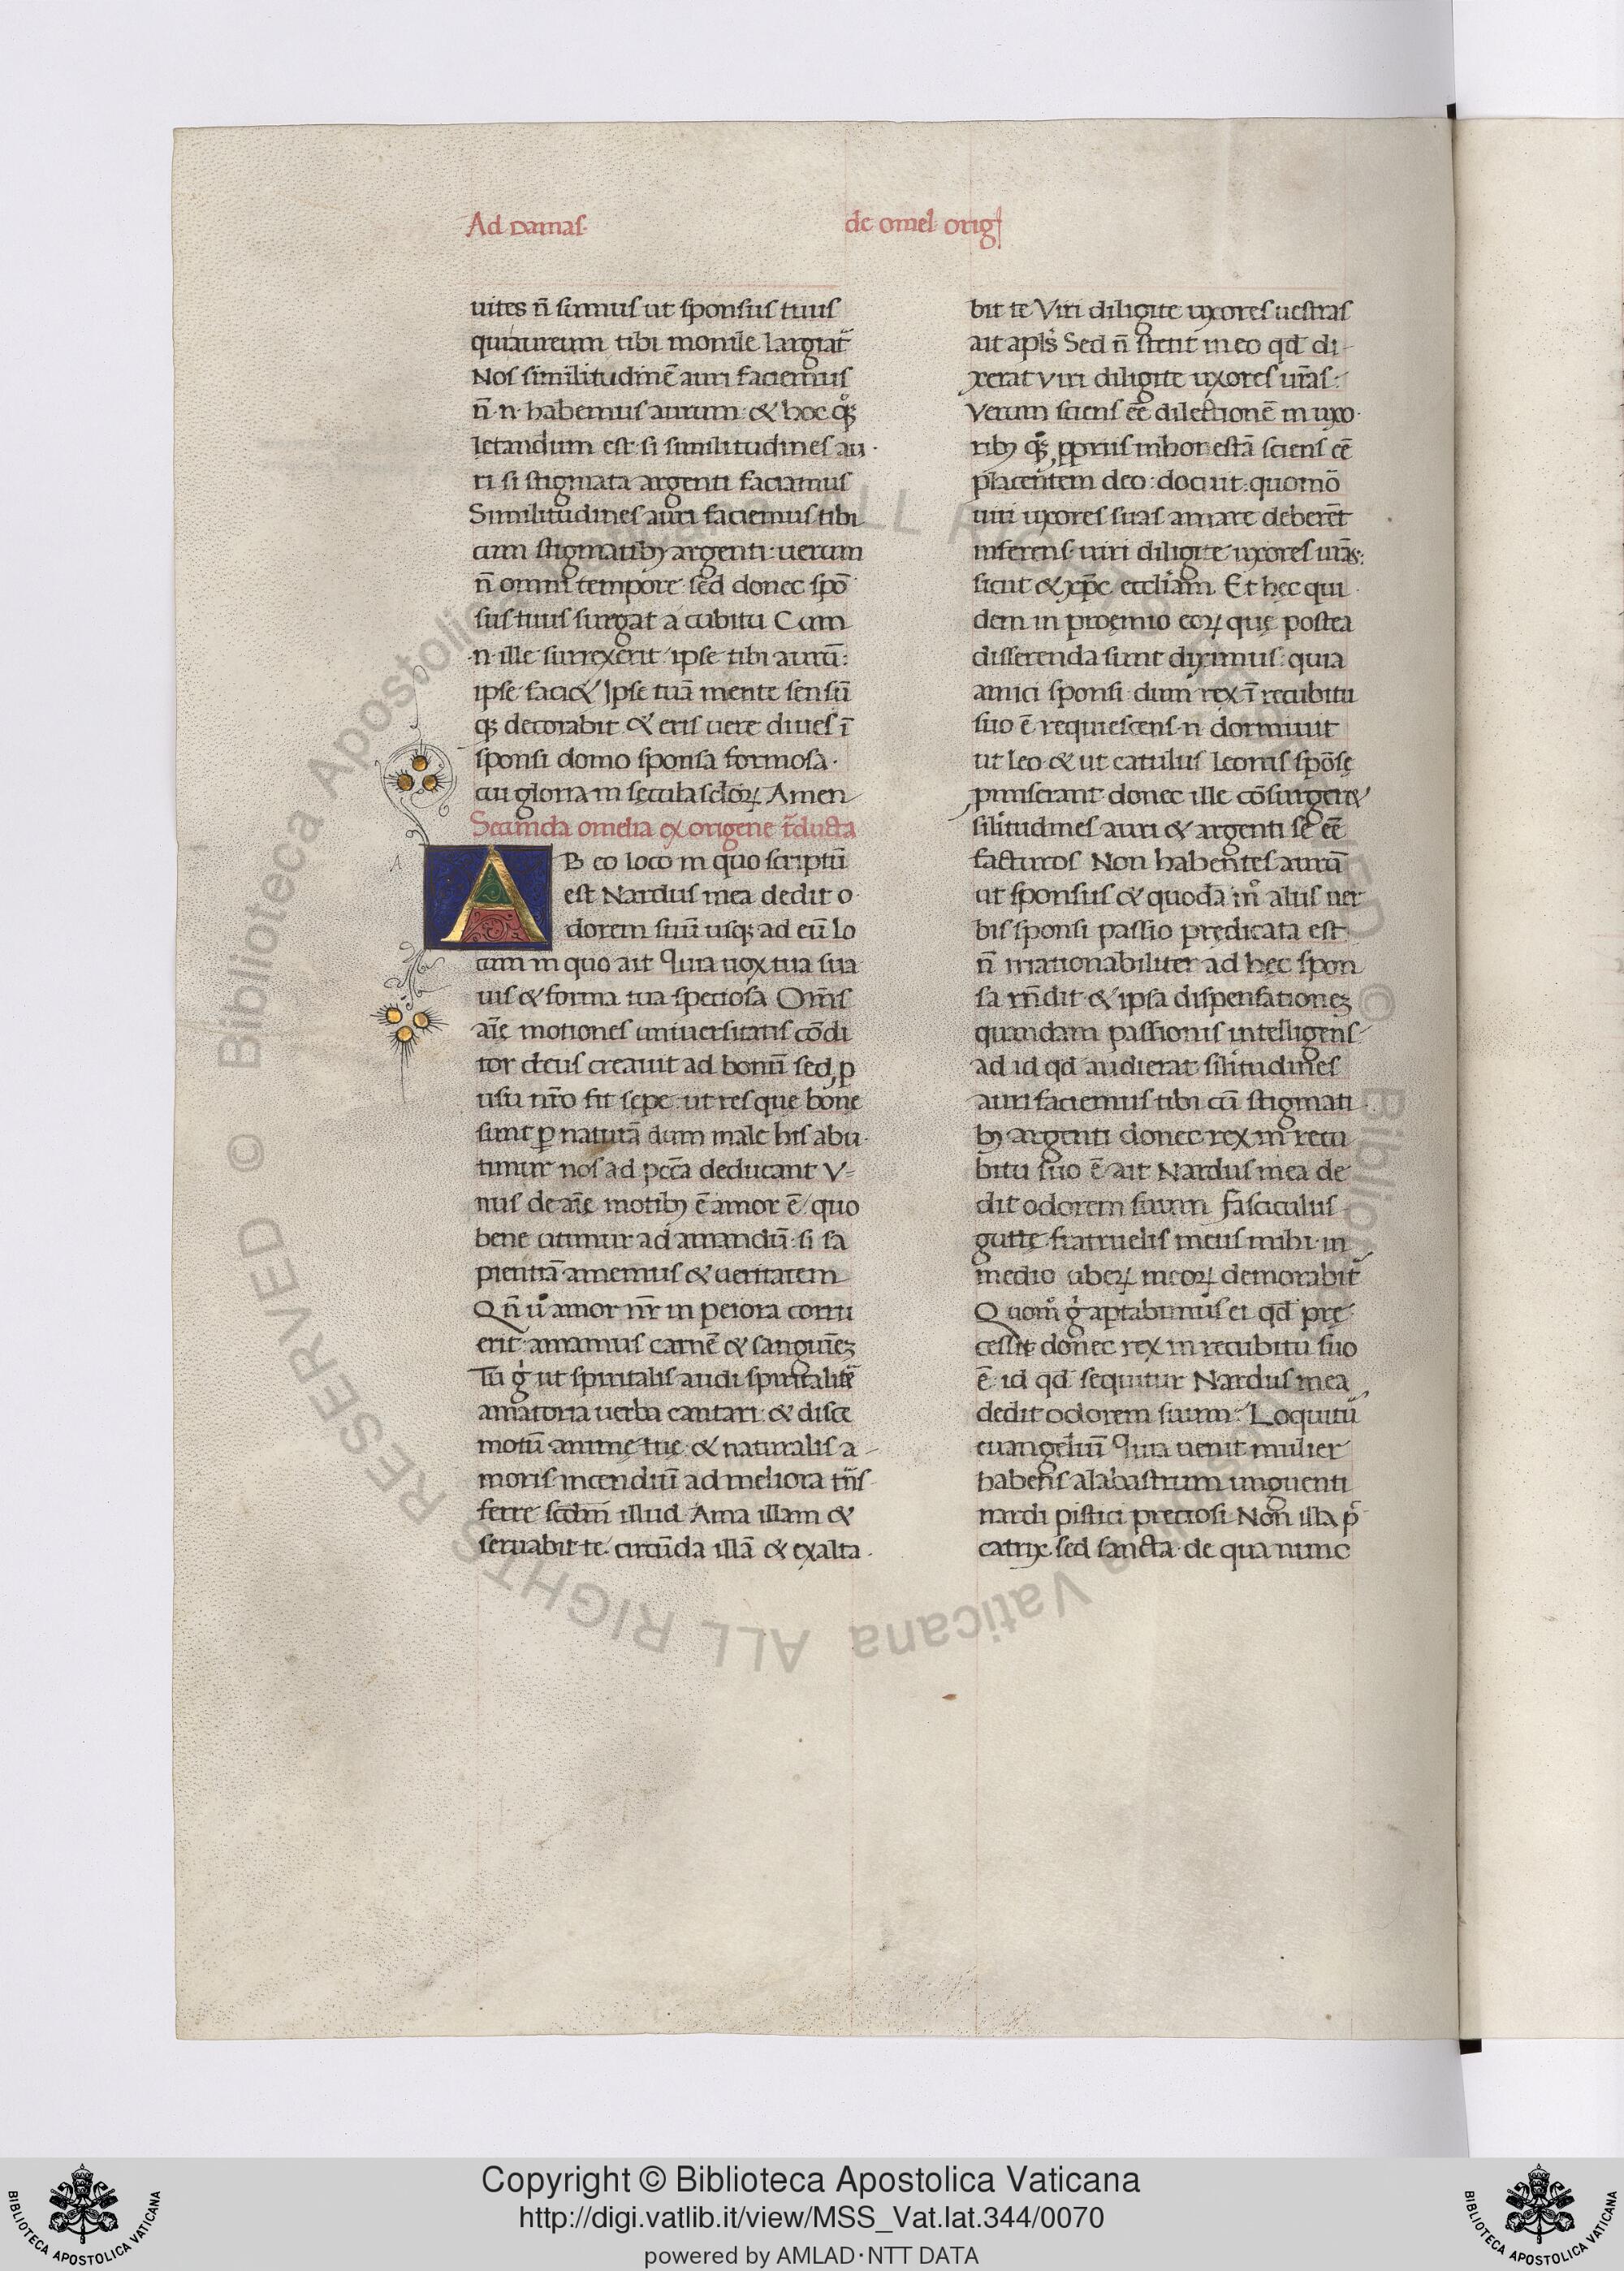 Ad Damas·
de omel· orig
uites n̄ sumus ut sponsus tuus
qui aureum tibi monile largiat᷑
Nos similitudinē auri faciemus
n̄·n· habemus aurum: & hoc qͦꝫ
letandum est· si similitudines au·
ri si stigmata argenti faciamus
Similitudines auri faciemus tibi
cum stigmatibꝫ argenti: uerum
n̄ omni tempore· sed donec spō
sus tuus surgat a cubitu Cum
·n· ille surrexerit· ipse tibi aurū:
ipse faci& Ipse tuā mente sensū
qꝫ decorabit & eris uere diues ī
sponsi domo sponsa formosa·
cui gloria in sęcula sclōꝝ Amen
Secunda omelia ex origene tͣducta
AB eo loco in quo scriptū
est Nardus mea dedit o·
dorem suū usqꝫ ad eū lo
cum in quo ait Quia uox tua sua
uis & forma tua speciosa Om̄s
aīe motiones uniuersitatis cōdi
tor deus creauit ad bonū sed ꝓ
usu nr̄o fit sępe· ut res que bone
sunt ꝑ naturā dum male his abu·
timur nos ad pcc̄a deducant V-
nus de aīe motibꝫ ē amor ē quo
bene utimur ad amandū· si sa
pientiā amemus & ueritatem
Qn̄ uͦ amor nr̄ in peiora corru
erit· amamus carnē & sanguinēꝫ
Tu gͥ ut spiritalis audi spiritalit᷑
amatoria uerba cantari· & disce
motū animę tuę· & naturalis a-
moris incendiū ad meliora trᷓns
ferre scd̄m illud Ama illam &
seruabit te· circūda illā & exalta·
bit te Viri diligite uxores uestras
ait apls̄ Sed n̄ stetit in eo qd̄ di-
xerat viri diligite uxores ur̄as·
Verum sciens eē dilectionē in uxo·
ribꝫ qͦꝫ ꝓpriis inhonestā sciens eē
placentem deo: docuit· quomō
uiri uxores suas amare deberēt
inferens· uiri diligite uxores ur̄as:
sicut & xp̄c eccliam Et hęc qui
dem in proęmio eoꝝ quę postea
disserenda sunt diximus: quia
amici sponsi· dum rex ī recubitu
suo ē requiescens· n̄ dormiuit
ut leo & ut catulus leonis spōsę
promiserant· donec ille cōsurger&
silitudines auri & argenti sē eē
facturos Non habentes aurū
ut sponsus & quodā mͦ aliis uer
bis sponsi passio prędicata est
n̄ irrationabiliter ad hęc spon
sa rn̄dit & ipsa dispensationeꝫ
quandam passionis intelligens·
ad id qd̄ audierat silitudines
auri faciemus tibi cū stigmati·
bꝫ argenti donec rex in recu
bitu suo ē· ait Nardus mea de
dit odorem suum fasciculus
guttę fratruelis meus mihi· in
medio uberꝝ meoꝝ demorabit᷑
Quomͦ gͥ aptabimus ei qd̄ prę·
cessit· donec rex in recubitu suo
ē· id qd̄ sequitur Nardus mea
dedit odorem suum· Loquit᷑
euangeliū Quia uenit mulier
habens alabastrum unguenti
nardi pistici preciosi· Non illa p̄
catrix sed sancta· de qua nunc
Copyright © Biblioteca Apostolica Vaticana
http://digi.vatlib.it/view/MSS_Vat.lat.344/0070
powered by AMLAD·NTT DATA
BIBLIOTECA APOSTOLICA VATICANA
BIBLIOTECA APOSTOLICA VATICANA
© Biblioteca Apostolica Vaticana ALL RIGHTS RESERVED